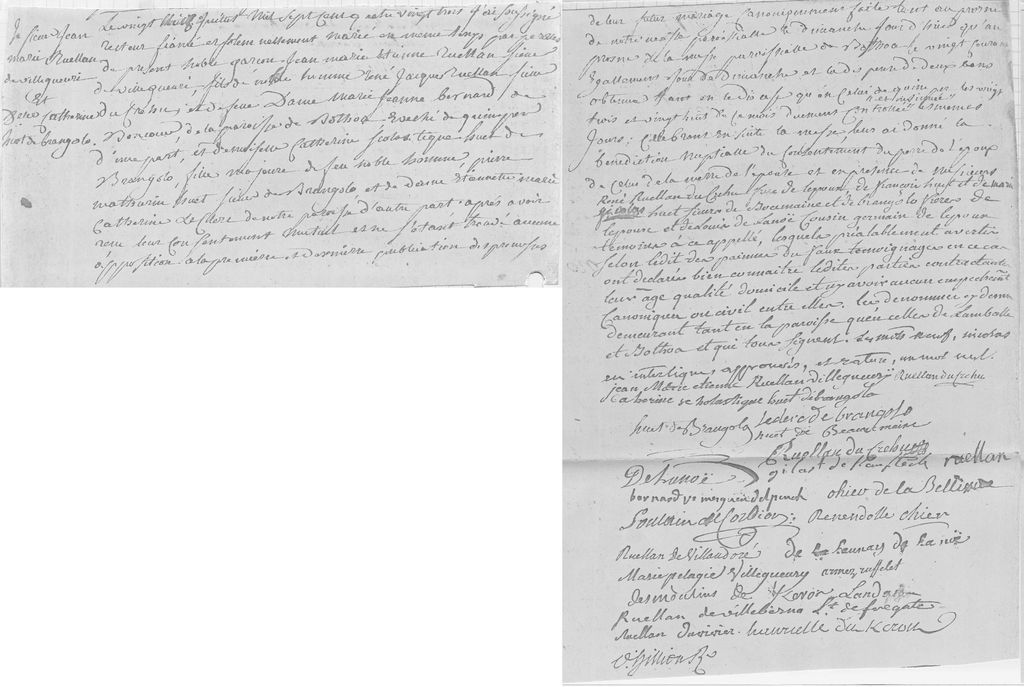 Jean
marie Ruellan
de villequeury
Et
Delle Catherine
huet de brangolo.
Le vingt huit juillet mil sept cent quatre vingt trois je soussigné
recteur fiancé et solemnellement marié en meme temps par
de present noble garcon jean marie Etienne Ruellan sieur
de villequeury fils de noble homme René Jacques Ruellan sieur
du Crehu, et de feue Dame Marie Jeanne bernard de
de la paroisse de Bothoa Evêché de quimper
d'une part, et demoiselle Catherine scolastique huet de
Brangolo, fille majeure de feu noble homme pierre
mathurin huet sieur de Brangolo et de dame marie
Catherine Leclerc de notre paroisse d'autre part, après avoir
recu leur consentement mutuel et ne s'étant trouvé aucune
opposition a la premiere et derniere publication des promesses
de leur futur mariage canoniquement faite tant au prosne
de notre messe paroissialle le dimanche jour d'huit qu'au
prosne de la messe paroissialle de Bothoa le vingt courant
egallement jour de dimanche et les dispenses de deux bans
obtenue tant en le diocese qu'en celui de quimper les vingt
trois et vingt huit de ce mois
jours; Celebrant en suite la messe leur ai donné la
bénédiction Nuptialle du Consentement du pere de l'epoux
de Celui de la mere de l'epouse et en presence de Messieurs
René Ruellan du Crehu pere de l'epoux, de francois huet et de
huet sieurs de Beaumaine et de brangolo freres de
l'epouse et de Cousin germain de l'epoux
temoins a ce appellé, lesquels préalablement avertis
selon l'edit des peinnes du faux temoignage en ce cas
ont declarés bien connaitre lesdites parties contractante
leur âge qualité domicile et n'y avoir aucun empechement
Canonique ou civil entre elles. les denommés cy dessus
demeurant tant en la paroisse qu'en celles de Lamballe
et Bothoa et qui tous signent. les mots neuf, nicolas
en interligne, approuvés, et rature, un mot nul.
jean Marie etienne Ruellan villequeury Ruellan du Crehu
Catherine scholastique huet de brangolo
huet de Brangolo leclerc de brangolo
huet de Beaumaine
Ruellan du Crehu
ruellan
bernard ve chieu de la Bellis
Poulain de Corbion: Renendolle chieu
Ruellan de Villaudoré de Launay de la noë
Marie pelagie Villequeury armez ruffelet
desmoulins de Keror Landa
Ruellan de villeberno Lt de fregate
Ruellan duvivier. henrielle du Kerou
v. hillion Rr